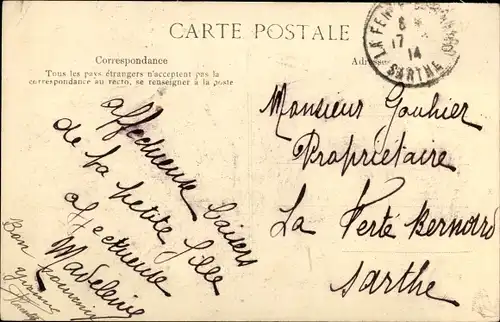 CARTE POSTALE
Correspondance
Tous les pays étrangers n'acceptent pas la
correspondance au recto, se renseigner à la poste
Adresse
LA FERTÉ BERNARD
6
17
14
SARTHE
affectueux baisers
de la petite fille
affectueuse
Madeleine
Bon souvenir
Yvonne
Monsieur Gouhier
Propriétaire
La Ferté Bernard
Sarthe